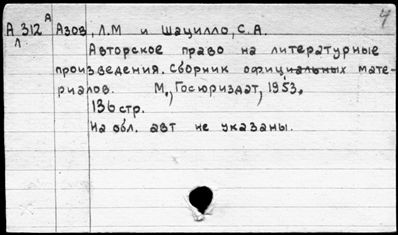 4
А 312 А Азов, Л.М и Шацилло, С.А.
Л.
Авторское право на литературные
произведения. Сборник официальных мате-
риалов. М., Госюриздат, 1953.
136 стр.
На обл. авт не указаны.